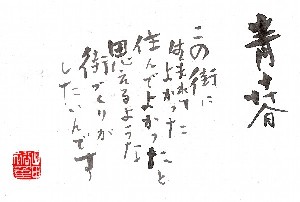 青春
この街に
生まれて
よかった
住んでよかったと
思えるような
街づくりが
したいんです